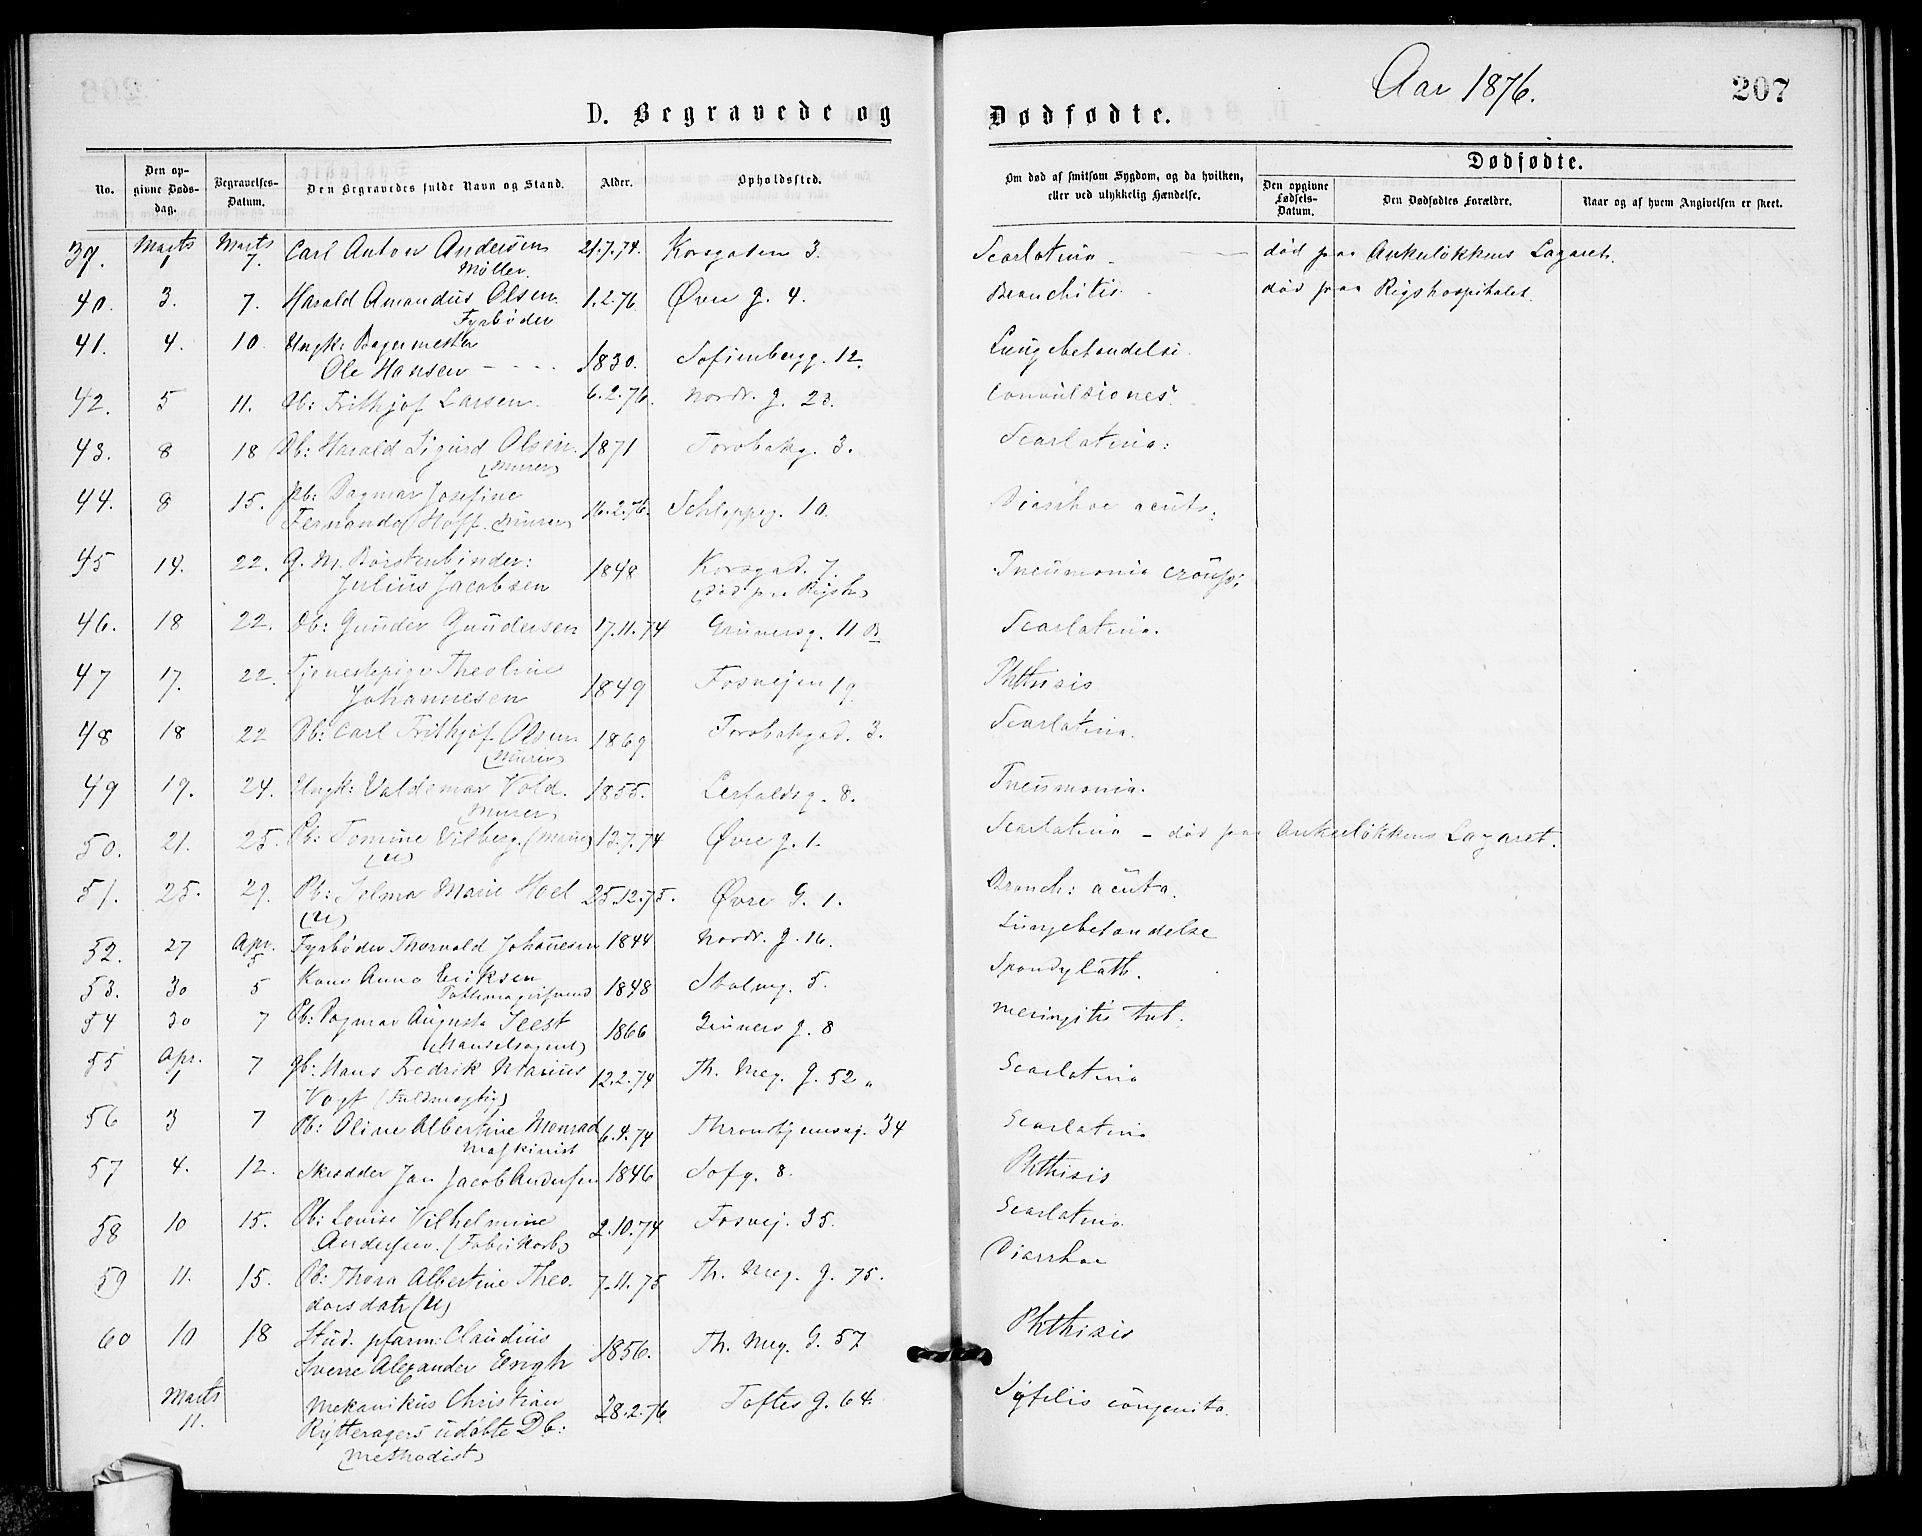 Aar 1876.
207
D. Begravede og
Dødfødte.
No.
Den opgivne Dødsdag.
Begravelses-Datum.
Den Begravedes fulde Navn og Stand.
Alder.
Opholdssted.
Om død af smitsom Sygdom, og da hvilken, eller ved ulykkelig Hændelse.
Dødfødte.
Den opgivne Fødsels-Datum.
Den Dødfødtes Forældre.
Naar og af hvem Angivelsen er skeet.
39. Marts 1 Marts 7. Carl Anton Andersen 21.7.74. Korsgaden 3. Scarlatina - død paa Ankerløkkens Lazaret.
Møller.
40. 3. 7. Harald Amandus Olsen 1.2.76. Øvre g. 4. Bronchitis. død paa Rigshospitalet.
Fyrbøder
41. 4. 10. Ungk: Bagermester
Ole Hansen - - - - 1830. Sofienbergg. 12. Lungebetændelse.
42. 5 11. Db: Frithjof Larsen. 6.2.76. Nordr. g. 23. Convulsiones.
43. 8 18 Db: Harald Sigurd Olsen. 1871 3. Scarlatina:
(Murer)
44. 8 15. Pb: Dagmar Josefine
Fernanda Hoff. (Murer) 16.2.76. Schleppeg. 10. Diarrhoe acuta:
45 14. 22. G. M. Børstenbinder:
Julius Jacobsen 1848 Korsgad. 7. Pneumonia croup:
(død paa Rigsh)
46. 18 22. Db: Gunder Gundersen 17.11.74 Grünersg. 11 B Scarlatina.
47 17. 22. Tjenestepige Theoline
Johannesen 1849 Fosvejen 19. Phthisis
48 18 22 Db: Carl Frithjof Olsen 1869 3. Scarlatina.
(Murer)
49 19. 24. Ungk: Valdemar Vold. 1855. 8. Pneumonia.
(Murer)
50. 21. 25. Pb: Tomine Vilberg. (Murer) 13.7.74 Øvre g. 1. Scarlatina - død paa Ankerløkkens Lazaret.
(U)
51. 25. 29. Pb: Selma Marie Hoel 25.12.75. Øvre G. 1. Bronch: acuta.
(U)
52. 27 Apr. 5 Fyrbøder Thorvald Johannesen 1844 Nordr. g. 16. Lungebetændelse
53. 30 5 Kone Anna Eriksen 1848 5.
54 30 7 Pb: Dagmar Augusta Seest 1866 Grüners g. 8 Meningitis tub.
(Handelsagent)
55 Apr. 1 7 Gb: Hans Fredrik Marius 12.2.74 Th. Mey. g. 52 „ Scarlatina
Vogt (Fuldmægtig)
56 3 7 Pb: Oline Albertine Monrad 6.4.74 Throndhjemsvej. 34 Scarlatina
Maskinist
57 4. 12. Skrædder Jan Jacob Andersen 1846 Sofg. 8. Phthisis
58 10 15. Pb: Lovise Vilhelmine
Andersen. (Fabrikarb) 2.10.74 Fosvej. 35. Scarlatina
59 11. 15. Pb: Thora Albertine Theo- 7.11.75 Th. Mey. g. 75. Diarrhoe
dorsdatr (U)
60 10 18 Stud. pharm: Claudius
Sverre Alexander Engh 1856. Th. Mey. G. 57 Phthisis
Marts 11. Mekanikus Christian 28.2.76 Toftes g. 64. Syfilis congenita.
Rytteragers udøbte Db:
(Methodist)